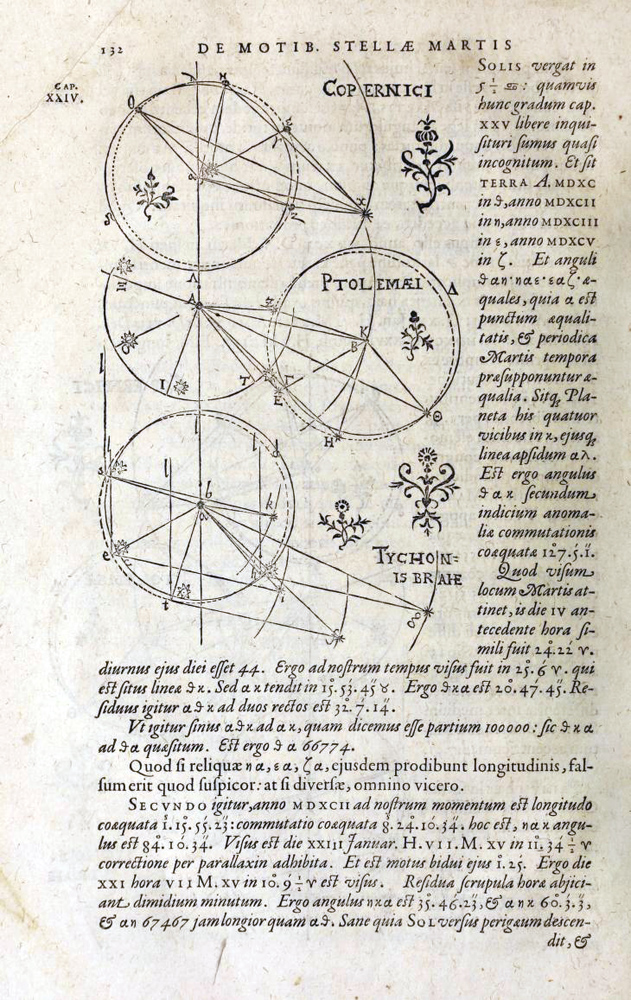 132 DE MOTIB. STELLÆ MARTIS
CAP.
XXIV.
COPERNICI
PTOLEMÆI
TYCHON=
IS BRAHE
SOLIS vergat in
5 ½ ♎: quamvis
hunc gradum cap.
XXV libere inqui-
situri sumus quasi
incognitum. Et sit
TERRA A. MDXC
in ϑ, anno MDXCII
in η, anno MDXCIII
in ε, anno MDXCV
in ζ. Et anguli
ϑαη·ηαε·εαζ·æ-
quales, quia α est
punctum æquali-
tatis, & periodica
Martis tempora
præsupponuntur æ-
qualia. Sitq; Pla-
neta his quatuor
vicibus in κ, ejusq;
linea apsidum αλ.
Est ergo angulus
ϑακ secundum
indicium anoma-
liæ commutationis
coæquatæ 127.5.1.
Quod visum
locum Martis at-
tinet, is die IV an-
tecedente hora si-
mili fuit 24.22 ♈.
diurnus ejus diei esset 44. Ergo ad nostrum tempus visus fuit in 25.6 ♈. qui
est situs lineæ ϑκ. Sed ακ tendit in 15.53.45 ♉. Ergo ϑκα est 20.47.45. Re-
siduus igitur αϑκ ad duos rectos est 32.7.14.
Vt igitur sinus αϑκ ad ακ, quam dicemus esse partium 100000: sic ϑκα
ad ϑα quæsitum. Est ergo ϑα 66774.
Quod si reliquæ ηα, εα, ζα, ejusdem prodibunt longitudinis, fal-
sum erit quod suspicor: at si diversæ, omnino vicero.
SECVNDO igitur, anno MDXCII ad nostrum momentum est longitudo
coæquata 1.15.55.23: commutatio coæquata 8.24.10.34. hoc est, ηακ angu-
lus est 84.10.34. Visus est die XXIII Januar. H. VII. M. XV in 11.34 ½ ♈
correctione per parallaxin adhibita. Et est motus bidui ejus 1.25. Ergo die
XXI hora VII M. XV in 10.9 ½ ♈ est visus. Residua scrupula horæ abjici-
ant dimidium minutum. Ergo angulus ηκα est 35.46.23, & αηκ 60.3.3,
& αη 67467 jam longior quam αϑ. Sane quia SOL versus perigæum descen-
dit, &